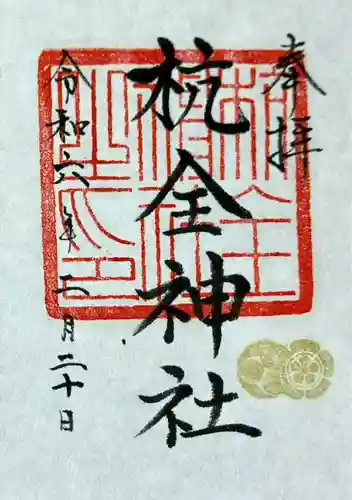 奉拝
杭全神社
令和六年五月二十日